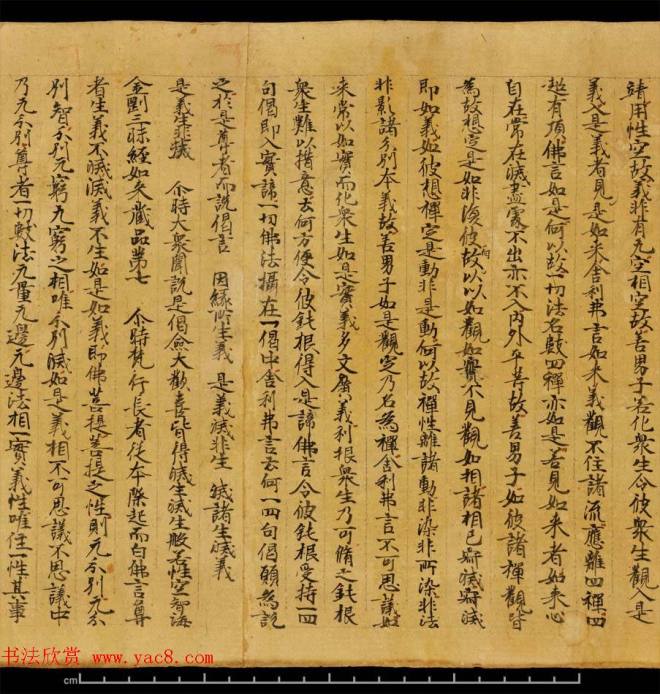 諦用性空故義非有无空相空故善男子若化衆生令彼衆生觀入是
義入是義者見是如来舍利弗言如来義觀不住諸流應離四禪四
超有頂佛言如是何以故一切法名數四禪亦如是若見如来者如来心
自在常在滅盡處不出亦不入內外平等故善男子如彼諸禪觀皆
為故想定是如非復彼何故以以如觀如實不見觀如相諸相已寂滅寂滅
即如義如彼想禪定是動非是動何以故禪性離諸動非染非所染非法
非影諸分別本義故善男子如是觀定乃名為禪舍利弗言不可思議如
来常以如實而化衆生如是實義多文廣義利根衆生乃可脩之鈍根
衆生難以措意云何方便令彼鈍根得入是諦佛言令彼鈍根受持一四
句偈即入實諦一切佛法攝在一偈中舍利弗言云何一四句偈願為說
之於是尊者而說偈言　因緣所生義　是義滅非生　滅諸生滅義
是義生非滅　尒時大衆聞說是偈僉大歡喜皆得滅生滅生般若性空智海
金剛三昧經如来藏品第七　尒時梵行長者從本際起而白佛言尊
者生義不滅滅義不生如是如義即佛菩提菩提之性則无分別无分
別智分別无窮无窮之相唯分別滅如是義相不可思議不思議中
乃无分別尊者一切數法无量无邊无邊法相一實義性唯住一性其事
书法欣赏 www.yac8.com
cm